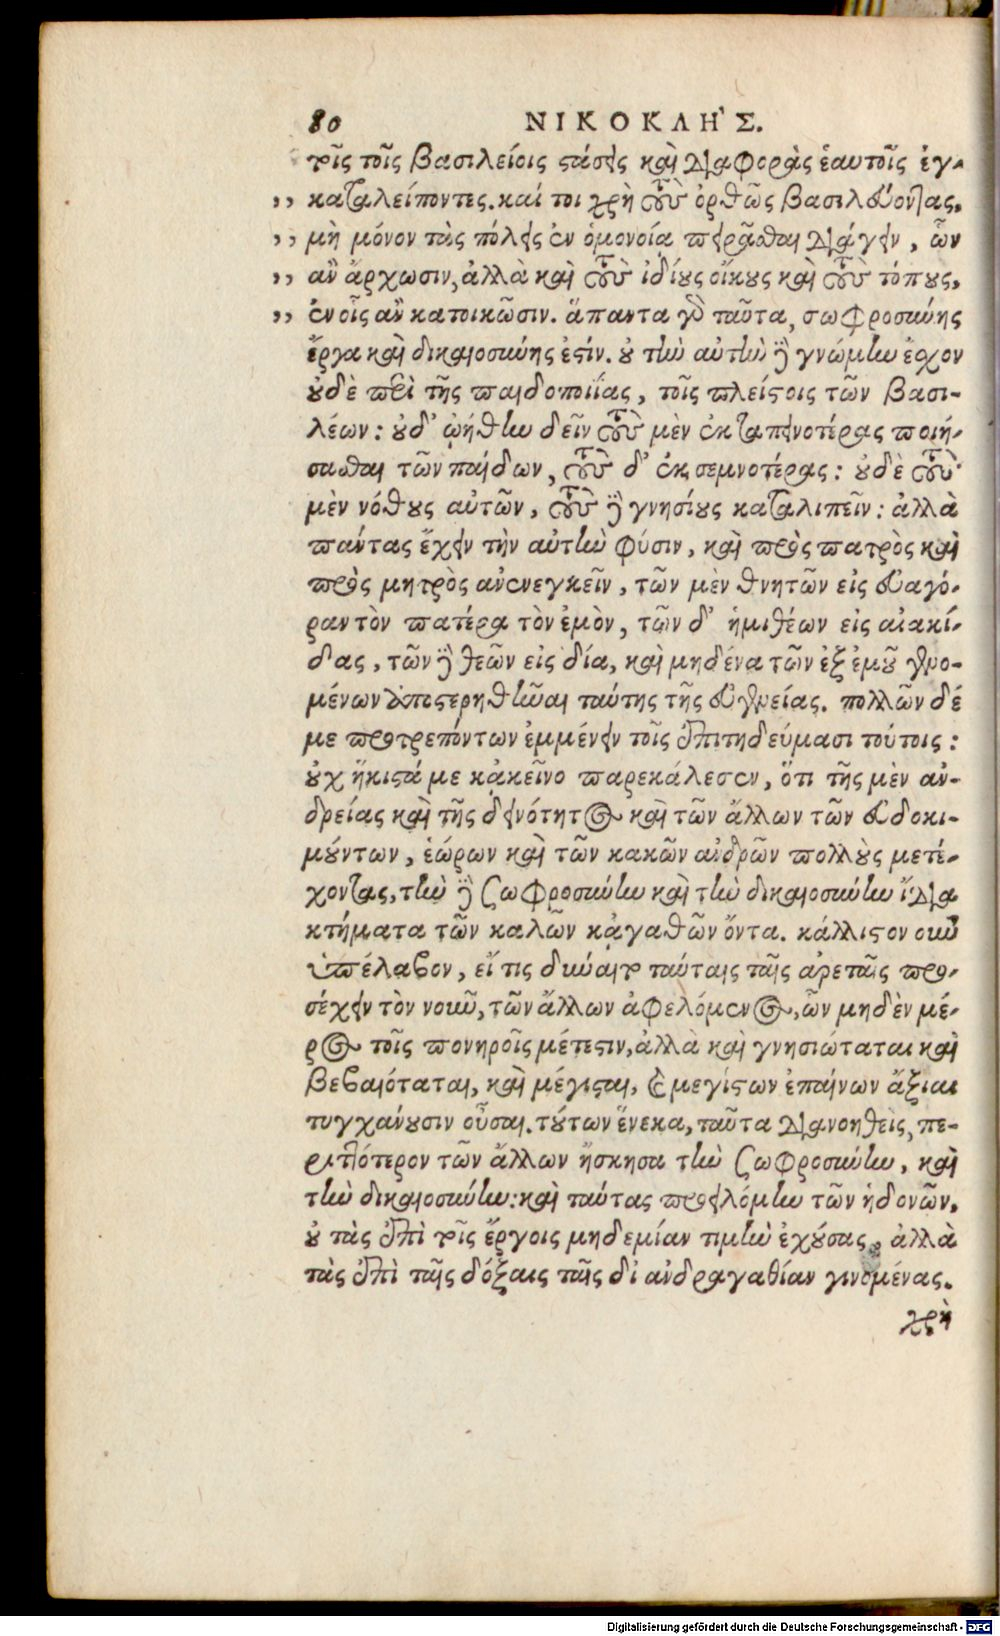 80 ΝΙΚΟΚΛΗ῍Σ.
τοῖς τοῖς βασιλείοις στάσεις καὶ διαφορὰς ἑαυτοῖς ἐγ-
,, καταλείποντες. καί τοι χρὴ τοὺς ὀρθῶς βασιλεύοντας,
,, μὴ μόνον τὰς πόλεις ἐν ὁμονοίᾳ πειρᾶσθαι διάγειν, ὧν
,, ἂν ἄρχωσιν, ἀλλὰ καὶ τοὺς ἰδίους οἴκους καὶ τοὺς τόπους,
,, ἐν οἷς ἂν κατοικῶσιν. ἅπαντα γὰρ ταῦτα, σωφροσύνης
ἔργα καὶ δικαιοσύνης ἐστίν. οὐ τὴν αὐτὴν δὲ γνώμην ἔχον
οὐδὲ περὶ τῆς παιδοποιΐας, τοῖς πλείστοις τῶν βασι-
λέων: οὐδ' ᾠήθην δεῖν τοὺς μὲν ἐκ ταπεινοτέρας ποιή-
σασθαι τῶν παίδων, τοὺς δ' ἐκ σεμνοτέρας: οὐδὲ τοὺς
μὲν νόθους αὐτῶν, τοὺς δὲ γνησίους καταλιπεῖν: ἀλλὰ
πάντας ἔχειν τὴν αὐτὴν φύσιν, καὶ πρὸς πατρὸς καὶ
πρὸς μητρὸς ἀνενεγκεῖν, τῶν μὲν θνητῶν εἰς εὐαγό-
ραν τὸν πατέρα τὸν ἐμὸν, τῶν δ' ἡμιθέων εἰς αἰακί-
δας, τῶν δὲ θεῶν εἰς δία, καὶ μηδένα τῶν ἐξ ἐμοῦ γενο-
μένων ἀποστερηθῆναι ταύτης τῆς εὐγενείας. πολλῶν δέ
με προτρεπόντων ἐμμένειν τοῖς ἐπιτηδεύμασι τούτοις:
οὐχ ἥκιστά με κἀκεῖνο παρεκάλεσεν, ὅτι τῆς μὲν ἀν-
δρείας καὶ τῆς δεινότητος καὶ τῶν ἄλλων τῶν εὐδοκι-
μούντων, ἑώρων καὶ τῶν κακῶν ἀνδρῶν πολλοὺς μετέ-
χοντας, τὴν δὲ σωφροσύνην καὶ τὴν δικαιοσύνην ἴδια
κτήματα τῶν καλῶν κἀγαθῶν ὄντα. κάλλιστον οὖν
ὑπέλαβον, εἴ τις δύναιτο ταύταις ταῖς ἀρεταῖς προ-
σέχειν τὸν νοῦν, τῶν ἄλλων ἀφελόμενος, ὧν μηδὲν μέ-
ρος τοῖς πονηροῖς μέτεστιν, ἀλλὰ καὶ γνησιώταται καὶ
βεβαιόταται, καὶ μέγισται, καὶ μεγίστων ἐπαίνων ἄξιαι
τυγχάνουσιν οὖσαι. τούτων ἕνεκα, ταῦτα διανοηθεὶς, πε-
ριττότερον τῶν ἄλλων ἤσκησα τὴν σωφροσύνην, καὶ
τὴν δικαιοσύνην: καὶ ταύτας προειλόμην τῶν ἡδονῶν,
οὐ τὰς ἐπὶ τοῖς ἔργοις μηδεμίαν τιμὴν ἐχούσας, ἀλλὰ
τὰς ἐπὶ ταῖς δόξαις ταῖς δι' ἀνδραγαθίαν γινομένας.
χρὴ
Digitalisierung gefördert durch die Deutsche Forschungsgemeinschaft - DFG